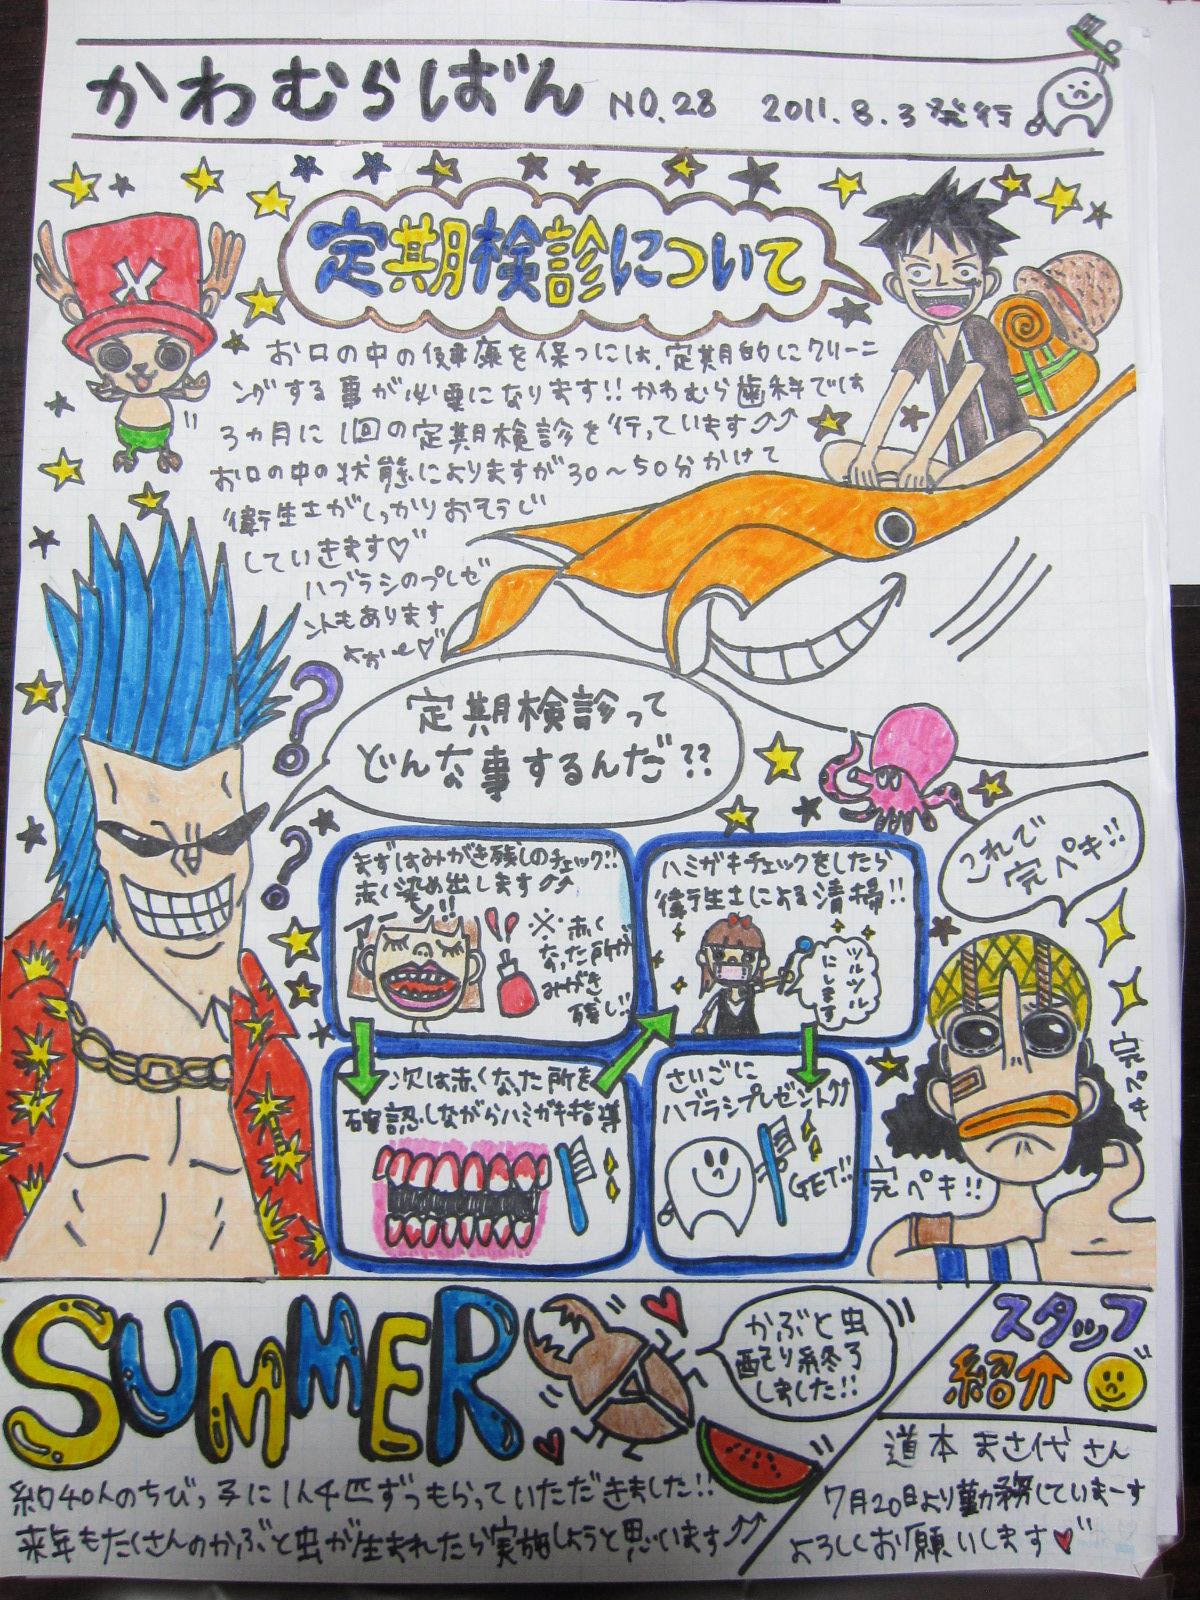 かわむらばん NO.28 2011.8.3発行
定期検診について
お口の中の健康を保つには、定期的にクリーニ
ングする事が必要になります!!かわむら歯科では
3ヵ月に1回の定期検診を行っています↗↗
お口の中の状態によりますが30〜50分かけて
衛生士がしっかりおそうじ
していきます♡
ハブラシのプレゼ
ントもあります
よぉ〜♡
定期検診って
どんな事するんだ??
まずはみがき残しのチェック!!
赤く染め出します↗↗
アーン!!
※赤く
なった所が
みがき
残し!!
次は赤くなった所を
確認しながらハミガキ指導
ハミガキチェックをしたら
衛生士による清掃!!
ツルツル
にします
さいごに
ハブラシプレゼント↗↗
GET!!
これで
完ペキ!!
完ペキ
完ペキ!!
SUMMER
かぶと虫
配り終了
しました!!
約40人のちびっ子に1人4匹ずつもらっていただきました!!
来年もたくさんのかぶと虫が生まれたら実施しようと思います↗↗
スタッフ
紹介
道本 まさ代さん
7月20日より勤務していまーす
よろしくお願いします♥